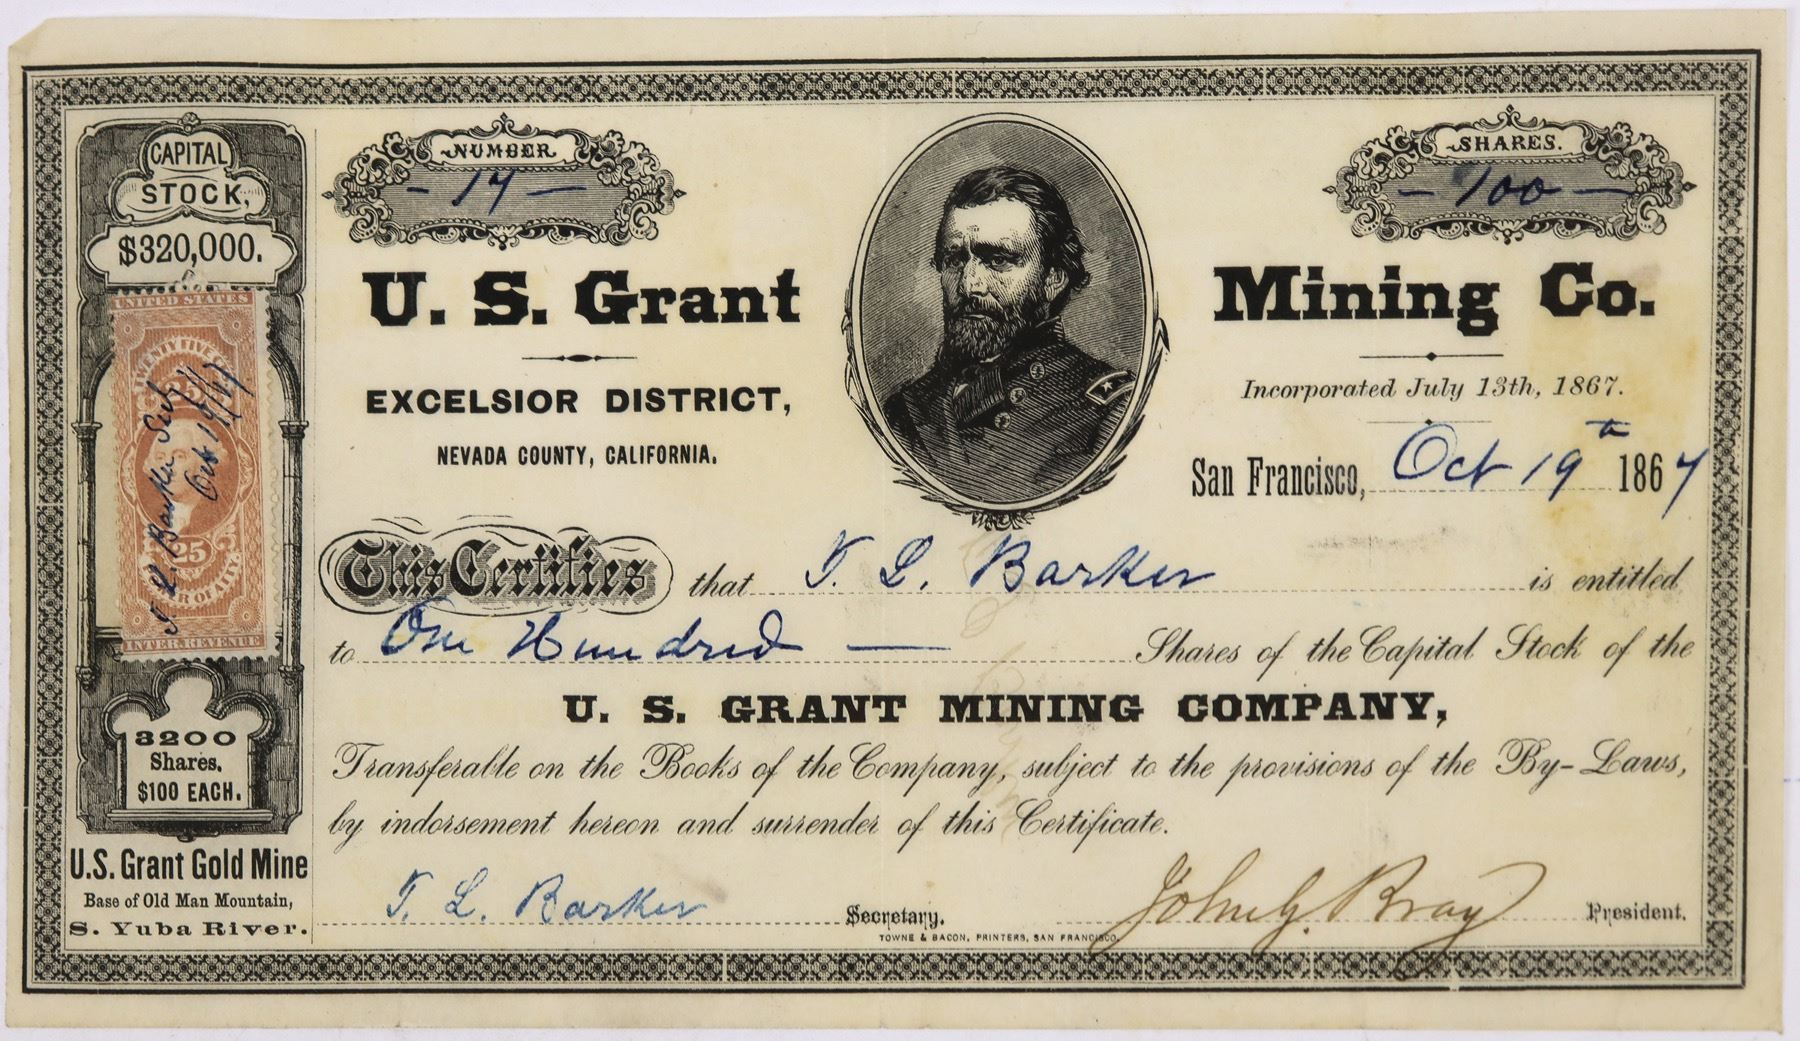 CAPITAL
STOCK,
$320,000.
UNITED STATES
TWENTY FIVE
25
25
INTER. REVENUE
T. L. Barker Secty
Oct 19/67
3200
Shares,
$100 EACH.
U.S. Grant Gold Mine
Base of Old Man Mountain,
S. Yuba River.
NUMBER
- 17 -
SHARES.
- 100 -
U. S. Grant Mining Co.
EXCELSIOR DISTRICT,
NEVADA COUNTY, CALIFORNIA.
Incorporated July 13th, 1867.
San Francisco, Oct 19th 1867
This Certifies that T. L. Barker is entitled
to One Hundred — Shares of the Capital Stock of the
U. S. GRANT MINING COMPANY,
Transferable on the Books of the Company, subject to the provisions of the By-Laws,
by indorsement hereon and surrender of this Certificate.
T. L. Barker Secretary. John G. Bray President.
TOWNE & BACON, PRINTERS, SAN FRANCISCO.